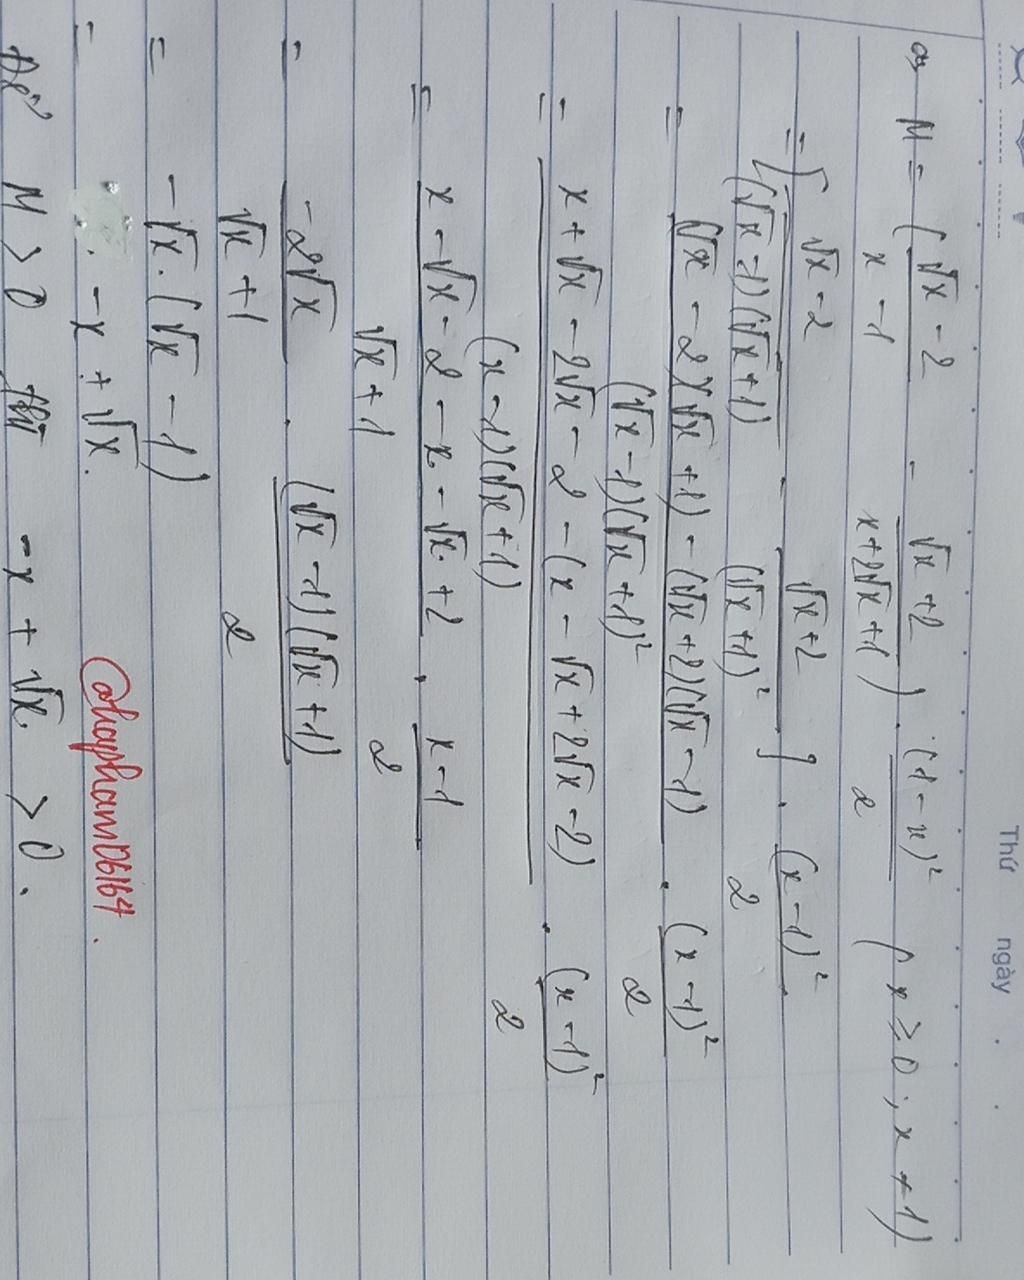 Thứ ngày
a, M = (√x - 2 / x - 1 - √x + 2 / x + 2√x + 1) . (1 - x)² / 2 (x ≥ 0 ; x ≠ 1)
= [√x - 2 / (√x - 1)(√x + 1) - √x + 2 / (√x + 1)²] . (x - 1)² / 2
= (√x - 2)(√x + 1) - (√x + 2)(√x - 1) / (√x - 1)(√x + 1)² . (x - 1)² / 2
= x + √x - 2√x - 2 - (x - √x + 2√x - 2) / (x - 1)(√x + 1) . (x - 1)² / 2
= x - √x - 2 - x - √x + 2 / √x + 1 . x - 1 / 2
= -2√x / √x + 1 . (√x - 1)(√x + 1) / 2
= -√x . (√x - 1)
= -x + √x.
Để M > 0 thì -x + √x > 0.
@haypham06164.